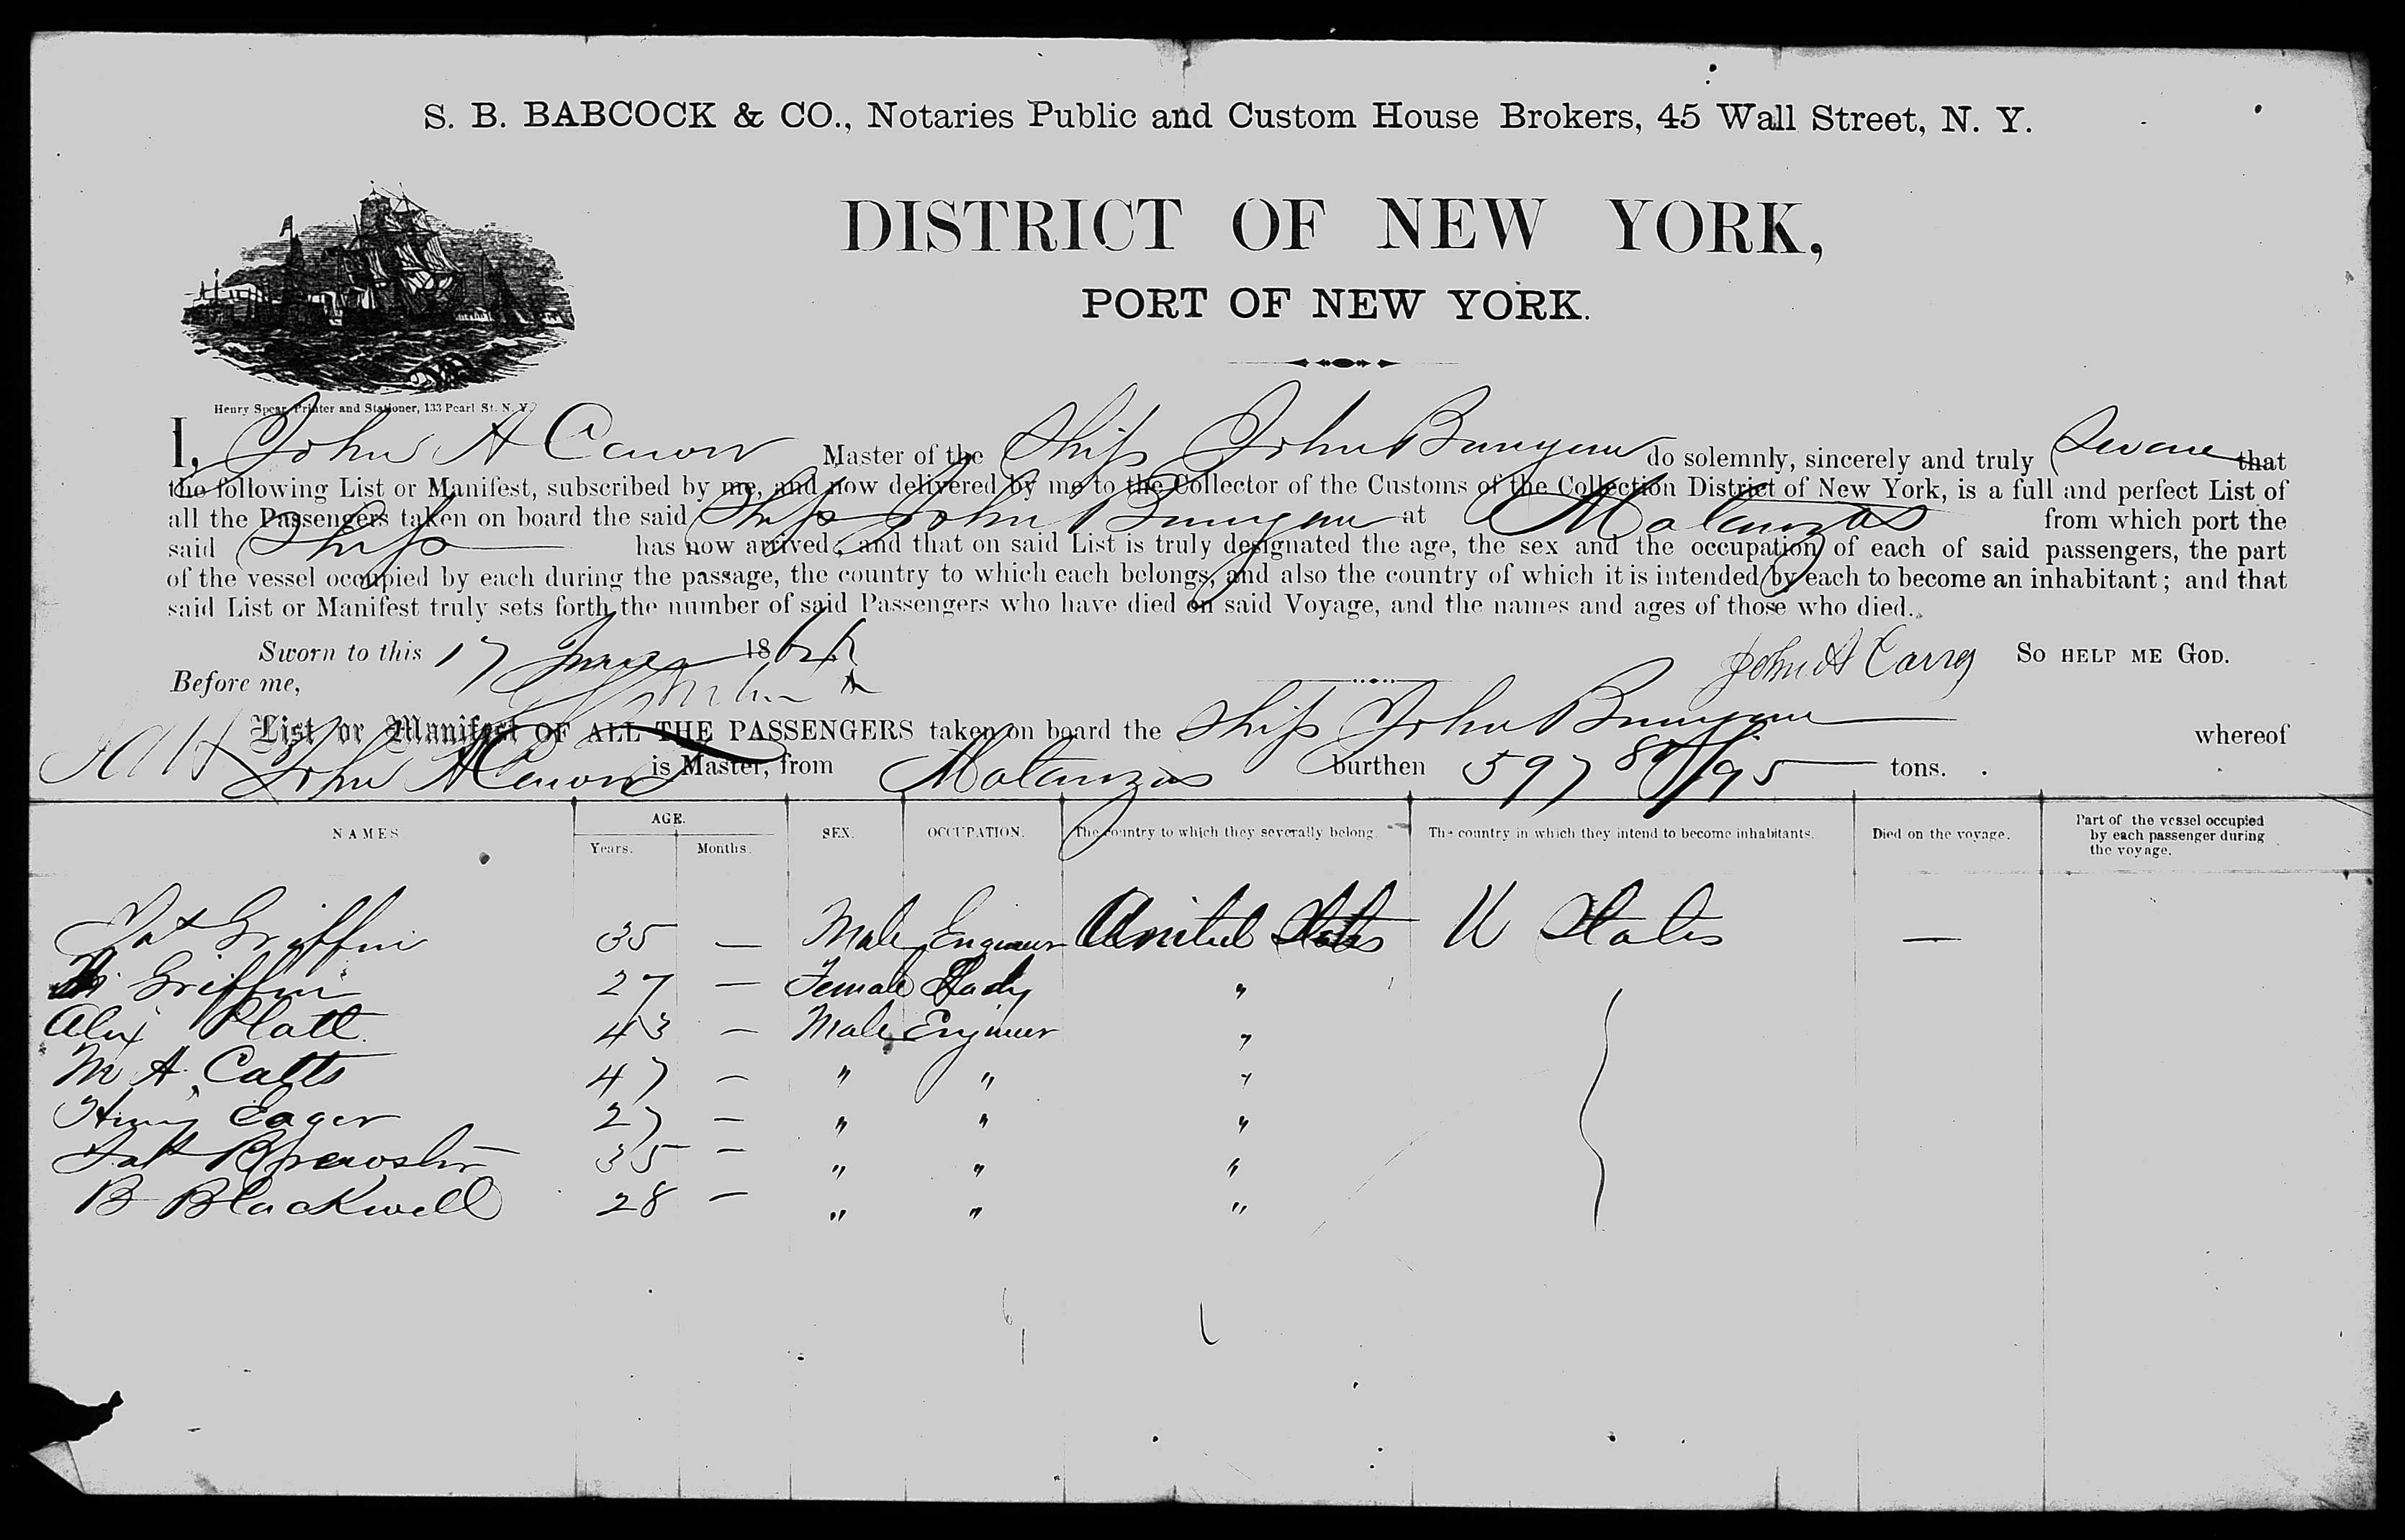 S. B. BABCOCK & CO., Notaries Public and Custom House Brokers, 45 Wall Street, N. Y.
DISTRICT OF NEW YORK,
PORT OF NEW YORK.
Henry Spear, Printer and Stationer, 133 Pearl St. N. Y.
I, John A Master of the Ship John Bunyan do solemnly, sincerely and truly that
the following List or Manifest, subscribed by me, and now delivered by me to the Collector of the Customs of the Collection District of New York, is a full and perfect List of
all the Passengers taken on board the said Ship John Bunyan at Matanzas from which port the
said Ship has now arrived; and that on said List is truly designated the age, the sex and the occupation of each of said passengers, the part
of the vessel occupied by each during the passage, the country to which each belongs, and also the country of which it is intended by each to become an inhabitant; and that
said List or Manifest truly sets forth the number of said Passengers who have died on said Voyage, and the names and ages of those who died.
Sworn to this 17 18 John A So HELP ME GOD.
Before me,
List or Manifest OF ALL THE PASSENGERS taken on board the Ship John Bunyan whereof
John A is Master, from Matanzas burthen 597 /95 tons.
NAMES AGE. Years. Months. SEX. OCCUPATION. The country to which they severally belong. The country in which they intend to become inhabitants. Died on the voyage. Part of the vessel occupied by each passenger during the voyage.
Pat Griffin 35 — Male Engineer United States U States —
Griffin 27 — Female Lady "
Alex Platt 43 — Male Engineer "
M A Catts 47 — " " "
Henry Eager 27 — " " "
Brewster 35 — " " "
B Blackwell 28 — " " "